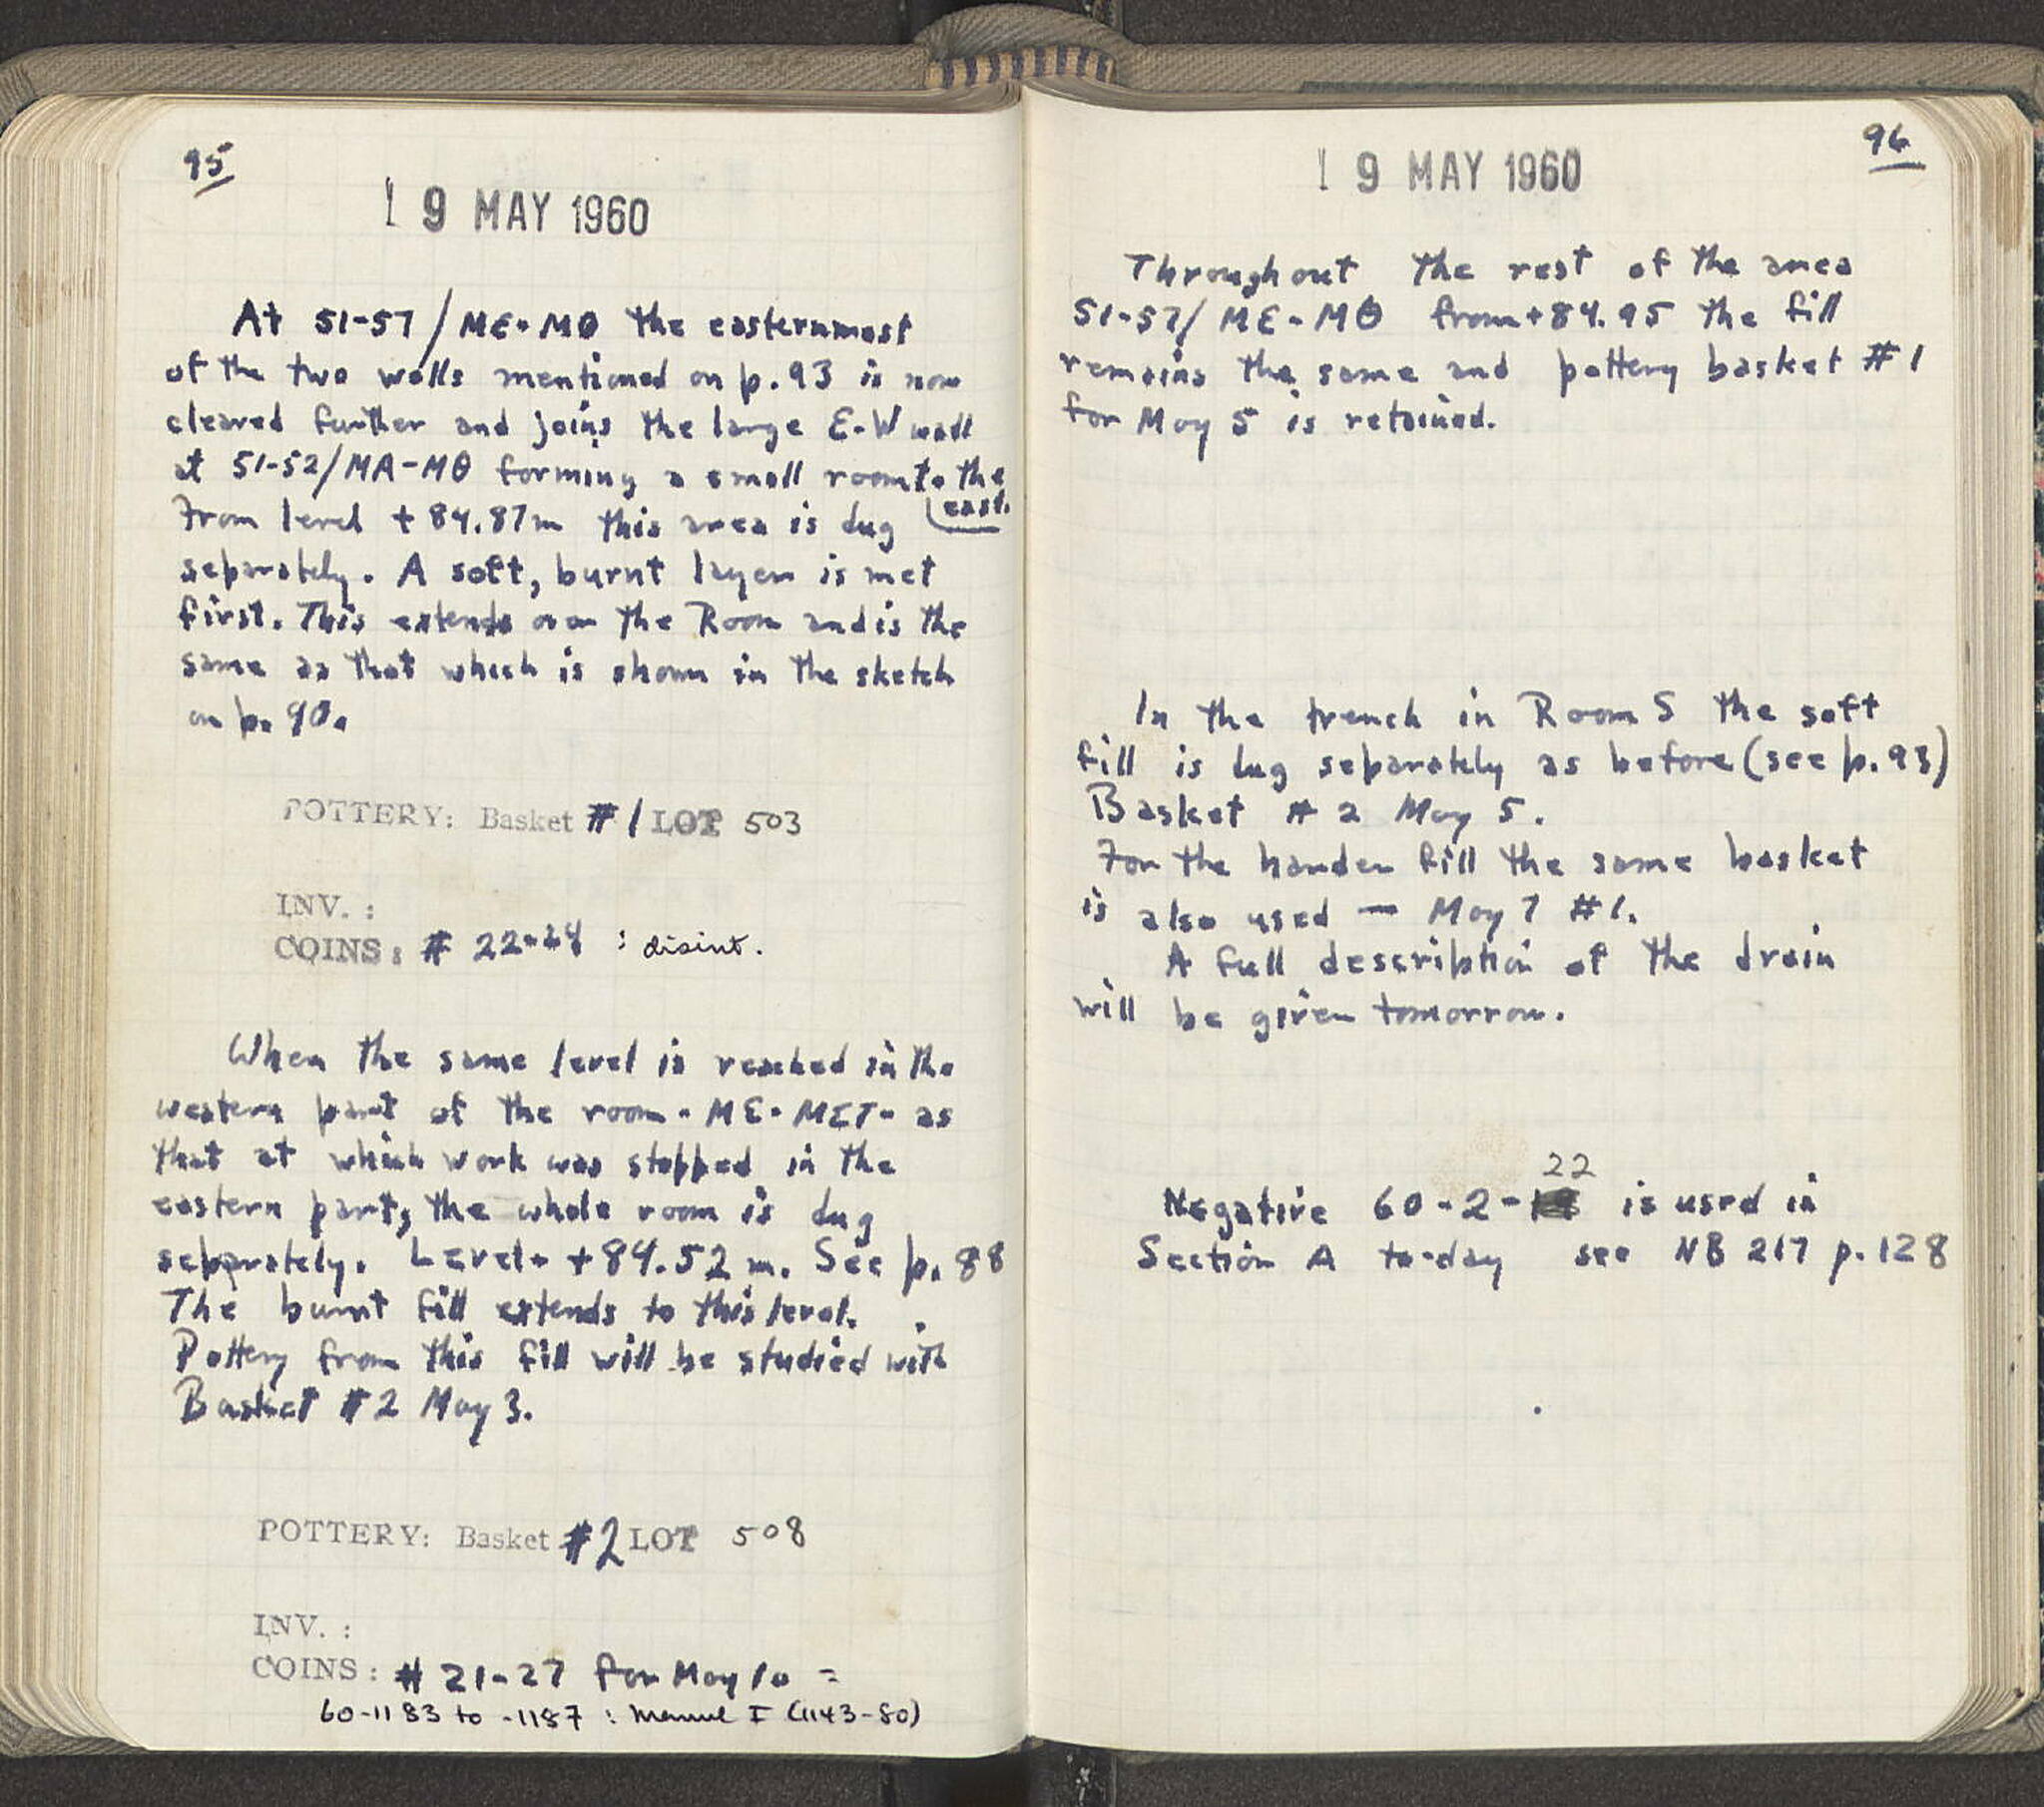 95
19 MAY 1960
At 51-57/ME-MΘ the easternmost
of the two walls mentioned on p.93 is now
cleared further and joins the large E-W wall
at 51-52/MA-MΘ forming a small room to the
east.
From level + 84.87m this area is dug
separately. A soft, burnt layer is met
first. This extends over the Room and is the
same as that which is shown in the sketch
on p. 90.
POTTERY: Basket #1 LOT 503
INV. :
COINS: # 22-24 : disint.
When the same level is reached in the
western part of the room - ME-MΣT- as
that at which work was stopped in the
eastern part, the whole room is dug
separately. Level + 84.52 m. See p. 88
The burnt fill extends to this level.
Pottery from this fill will be studied with
Basket #2 May 3.
POTTERY: Basket #2 LOT 508
INV. :
COINS: # 21-27 for May 10 =
60-1183 to -1187 : Manuel I (1143-80)
96
19 MAY 1960
Throughout the rest of the area
51-57/ME-MΘ from +84.95 the fill
remains the same and pottery basket #1
for May 5 is retained.
In the trench in Room S the soft
fill is dug separately as before (see p. 93)
Basket # 2 May 5.
For the harder fill the same basket
is also used — May 7 #1.
A full description of the drain
will be given tomorrow.
22
Negative 60-2- is used in
Section A to-day see NB 217 p.128